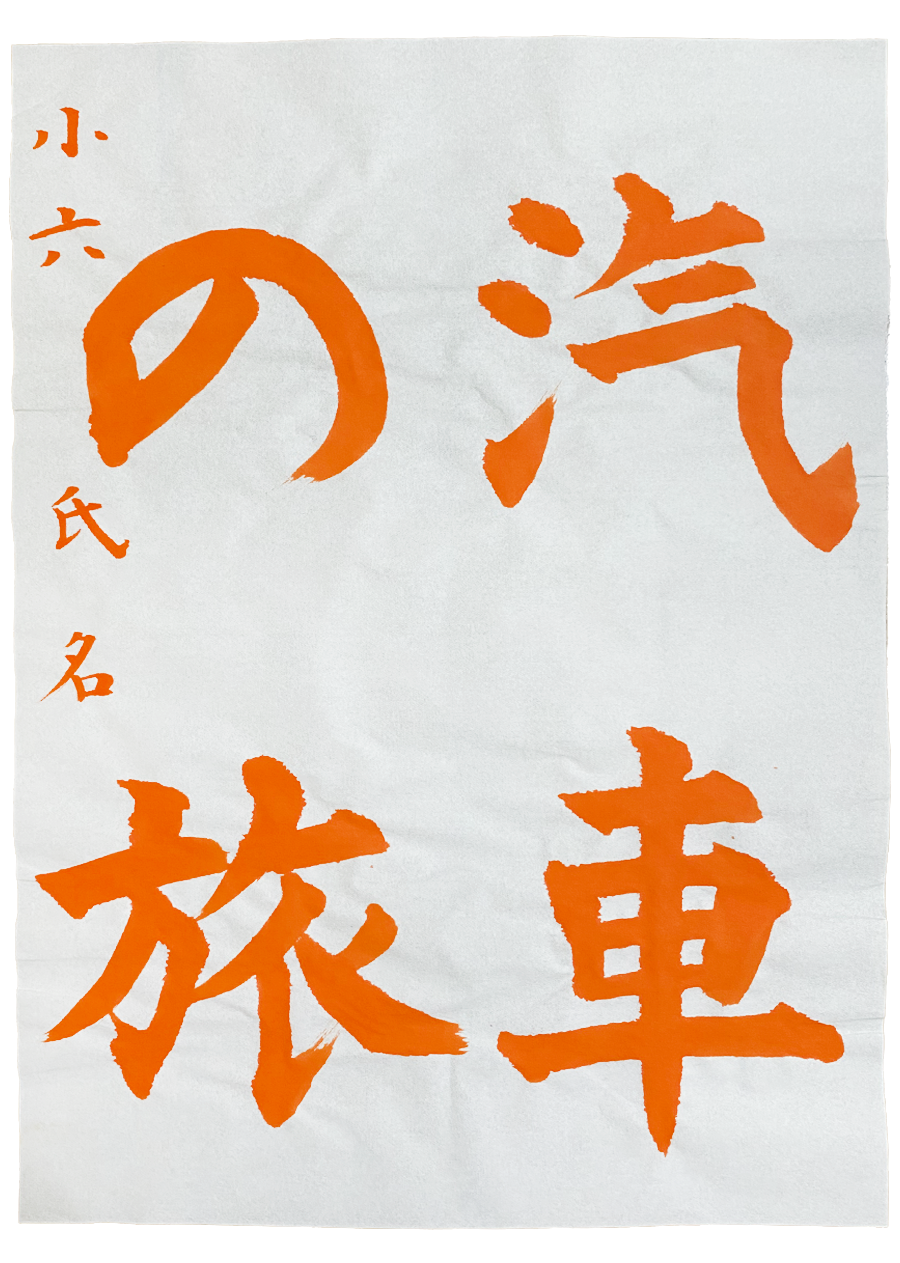 汽車
の旅
小六 氏名